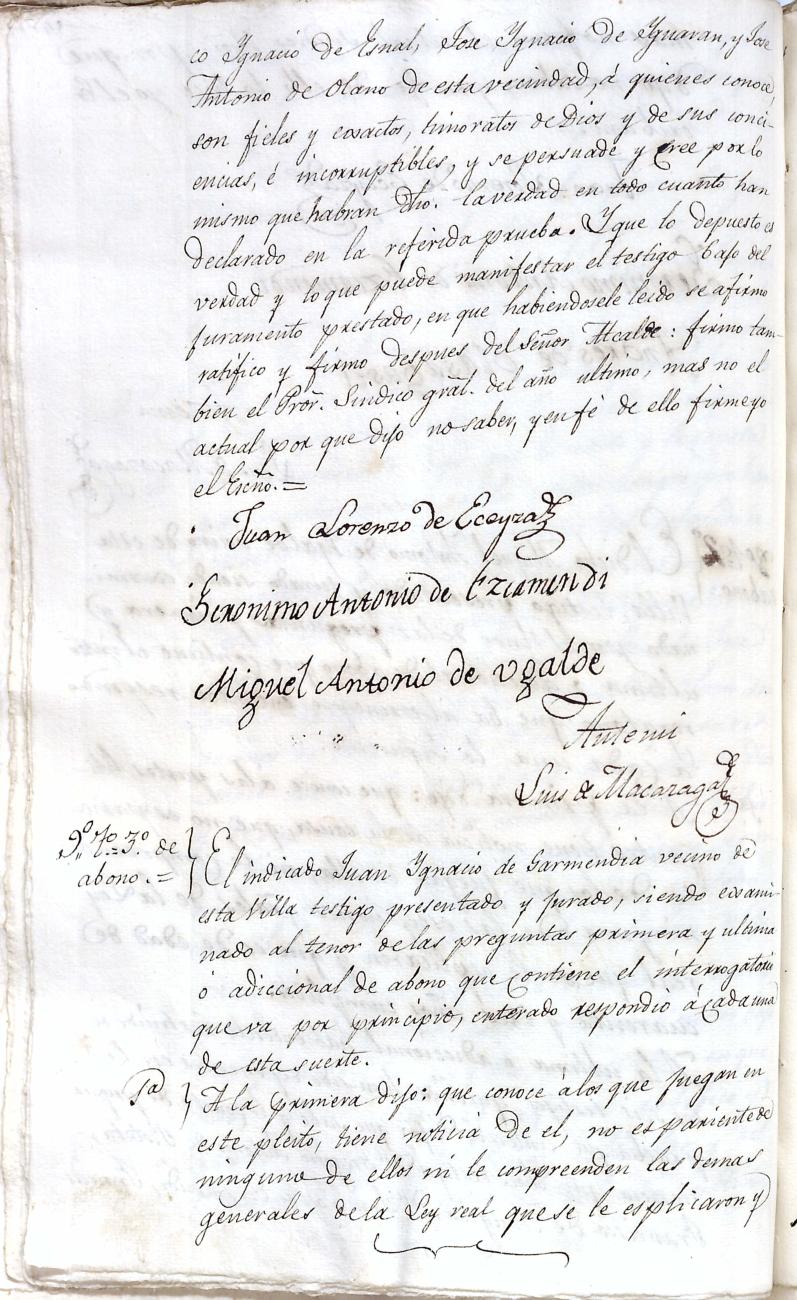 co Ygnacio de Esnal, Jose Ygnacio de Yguaran, y Jose
Antonio de Olano de esta vecindad, á quienes conoce,
son fieles y exactos, timoratos de Dios y de sus conci-
encias, é incorruptibles, y se persuade y cree por lo
mismo que habran dho. la verdad en todo cuanto han
declarado en la referida prueba. Y que lo depuesto es
verdad y lo que puede manifestar el testigo bajo del
juramento prestado, en que habiendosele leido se afirmo
ratifico y firmo despues del Señor Alcalde: firmo tam-
bien el Pror. Sindico gral. del año ultimo, mas no el
actual por que dijo no saber, y en fé de ello firme yo
el Escño.=
Juan Lorenzo de Eceyza
Geronimo Antonio de Ezcamendi
Miguel Antonio de Ugalde
Antemi
Luis de Macazaga
9.º t.º 3.º de
abono.=
El indicado Juan Ygnacio de Garmendia vecino de
esta Villa testigo presentado y jurado, siendo exami-
nado al tenor de las preguntas primera y ultima
ó adiccional de abono que contiene el interrogatorio
que va por principio, enterado respondió á cada una
de esta suerte.
1.ª
A la primera dijo: que conoce á los que juegan en
este pleito, tiene noticia de el, no es pariente de
ninguno de ellos ni le compreenden las demas
generales de la Ley real que se le esplicaron y